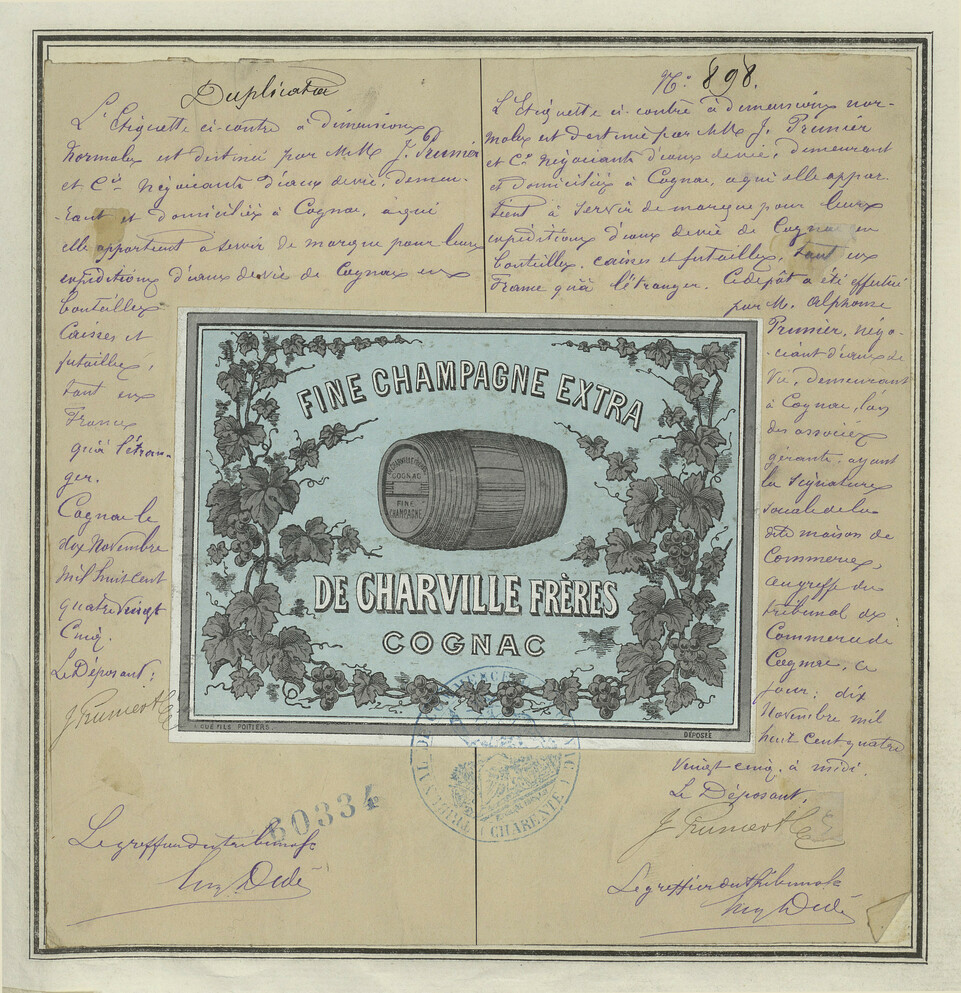 Duplicata
L'Etiquette ci-contre à dimensions
Normales est destinée par MM. J. Prunier
et Cie Négociants d'eaux de vie, demeu-
rant et domiciliés à Cognac, à qui
elle appartient à servir de marque pour leurs
expéditions d'eaux de vie de Cognac en
bouteilles
Caisses et
futailles,
tant en
France
qu'à l'étran-
ger.
Cognac le
dix Novembre
mil huit cent
quatre vingt
Cinq.
Le Déposant:
J. Prunier & Cie
Le greffier du tribunal
Eug Dedé
No. 898.
L'Etiquette ci-contre à dimensions nor-
males est destinée par MM. J. Prunier
et Cie Négociants d'eaux de vie, demeurant
et domiciliés à Cognac, à qui elle appar-
tient à servir de marque pour leurs
expéditions d'eaux de vie de Cognac en
bouteilles, caisses et futailles, tant en
France qu'à l'étranger. Ce dépôt a été effectué
par M. Alphonse
Prunier, négo-
ciant d'eaux de
Vie, demeurant
à Cognac, l'un
des associés
gérants, ayant
la signature
sociale de la
dite maison de
Commerce,
au greffe du
tribunal de
Commerce de
Cognac, ce
jour, dix
Novembre mil
huit cent quatre
vingt cinq, à midi.
Le Déposant,
J. Prunier & Cie
Le greffier du tribunal
Eug Dedé
FINE CHAMPAGNE EXTRA
DE CHARVILLE FRÈRES
COGNAC
FINE
CHAMPAGNE
DE CHARVILLE FRÈRES
COGNAC
GUÉ FILS POITIERS.
DÉPOSÉE
60334
TRIBUNAL DE COMMERCE
CHARENTE